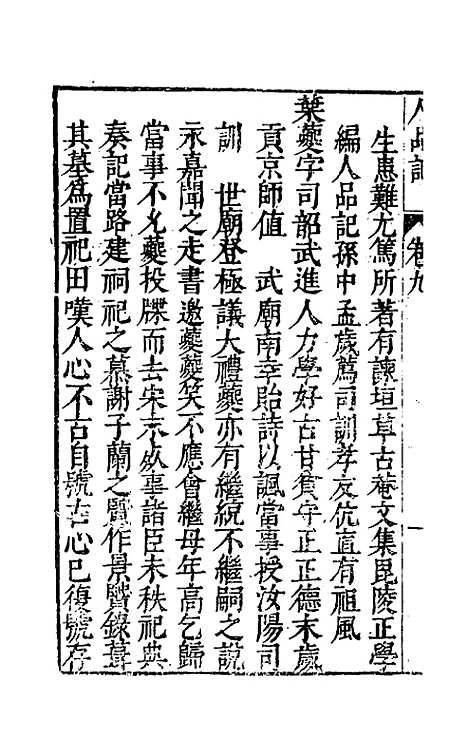 人品記 卷九
生患難尤篤所著有諫垣草古菴文集毘陵正學
編人品記孫中孟歲薦司訓孝友伉直有祖風
葉夔字司韶武進人力學好古甘貧守正正德末歲
貢京師值 武廟南幸貽詩以諷當事授汝陽司
訓 世廟登極議大禮夔亦有繼統不繼嗣之說
永嘉聞之走書邀夔夔笑不應會繼母年高乞歸
當事不允夔投牒而去宋示死事諸臣未秩祀典
奏記當路建祠祀之慕謝子蘭之賢作景賢錄葺
其墓爲置祀田嘆人心不古自號古心已復號存